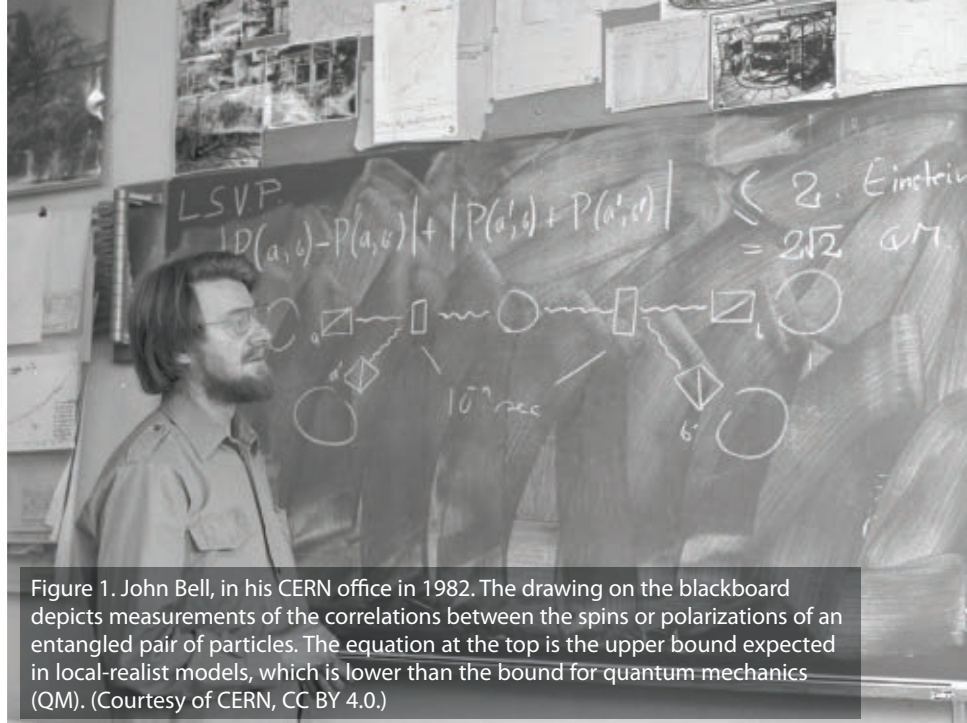 LSVP.
|P(a,b)-P(a,b')|+|P(a',b)+P(a',b')| ≤ 2. Einstein
= 2√2 QM
a
b
a'
sec
b'
Figure 1. John Bell, in his CERN office in 1982. The drawing on the blackboard
depicts measurements of the correlations between the spins or polarizations of an
entangled pair of particles. The equation at the top is the upper bound expected
in local-realist models, which is lower than the bound for quantum mechanics
(QM). (Courtesy of CERN, CC BY 4.0.)